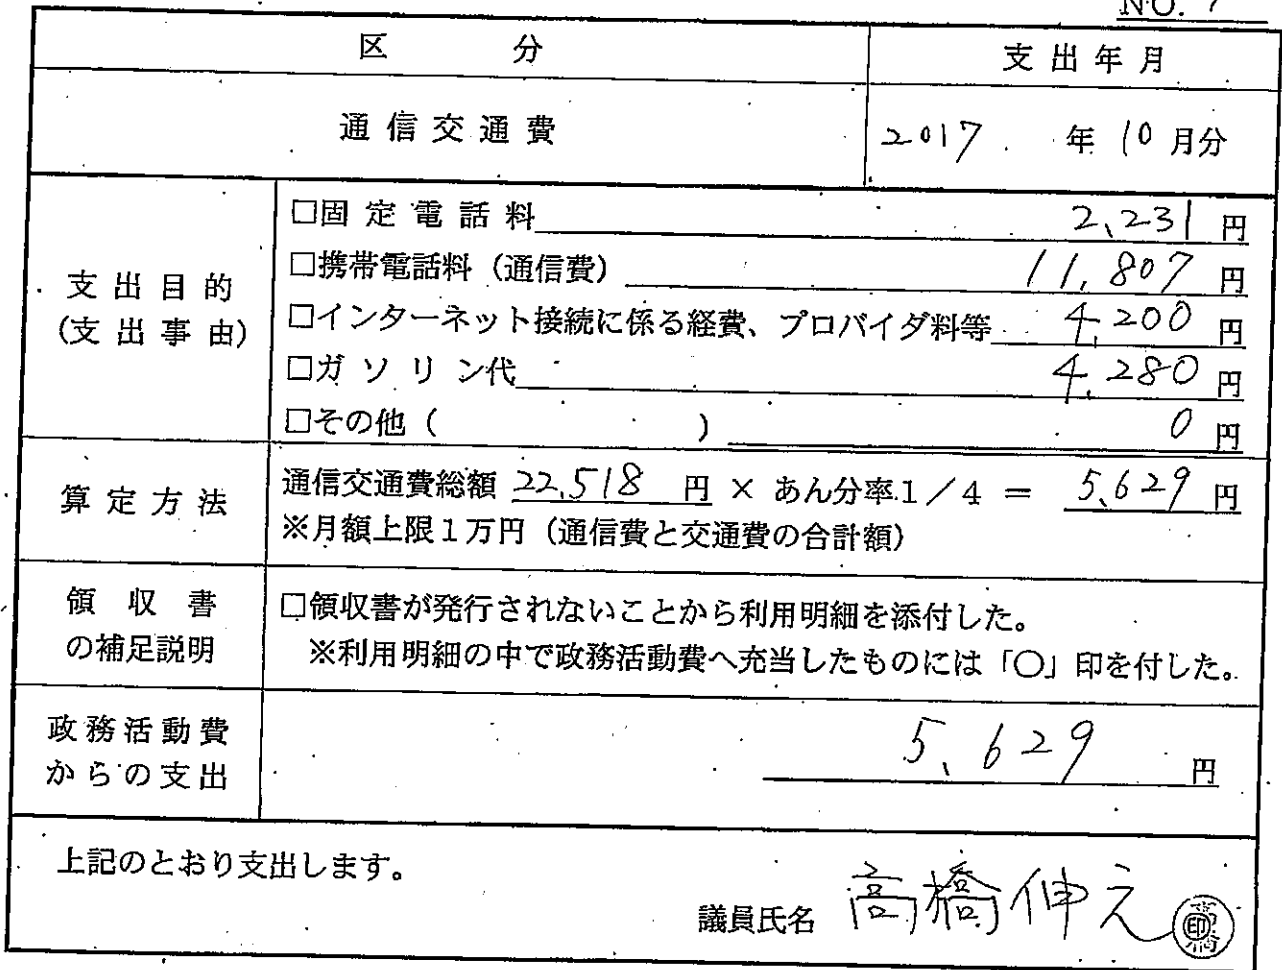 NO. 7
区 分
支出年月
通信交通費
2017 年 10 月分
支出目的
(支出事由)
□固定電話料 2,231 円
□携帯電話料（通信費） 11,807 円
□インターネット接続に係る経費、プロバイダ料等 4,200 円
□ガソリン代 4,280 円
□その他（ ） 0 円
算定方法
通信交通費総額 22,518 円 × あん分率1／4 ＝ 5,629 円
※月額上限1万円（通信費と交通費の合計額）
領収書
の補足説明
□領収書が発行されないことから利用明細を添付した。
※利用明細の中で政務活動費へ充当したものには「〇」印を付した。
政務活動費
からの支出
5,629 円
上記のとおり支出します。
議員氏名 高橋伸元 印